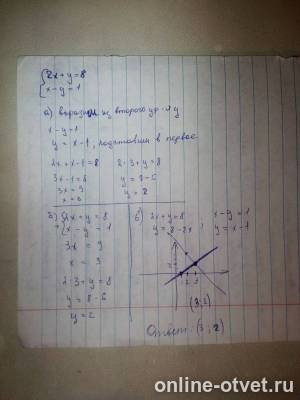 {2x+y=8
{x-y=1
а) выразим из второго ур-я y
x-y=1
y = x-1, подставим в первое
2x+x-1=8
3x-1=8
3x=9
x=3
2·3+y=8
y=8-6
y=2
б) {2x+y=8
+{x-y=1
3x=9
x=3
2·3+y=8
y=8-6
y=2
в) 2x+y=8
y=8-2x
x-y=1
y=x-1
(3;2)
Ответ: (3;2)
online-otvet.ru